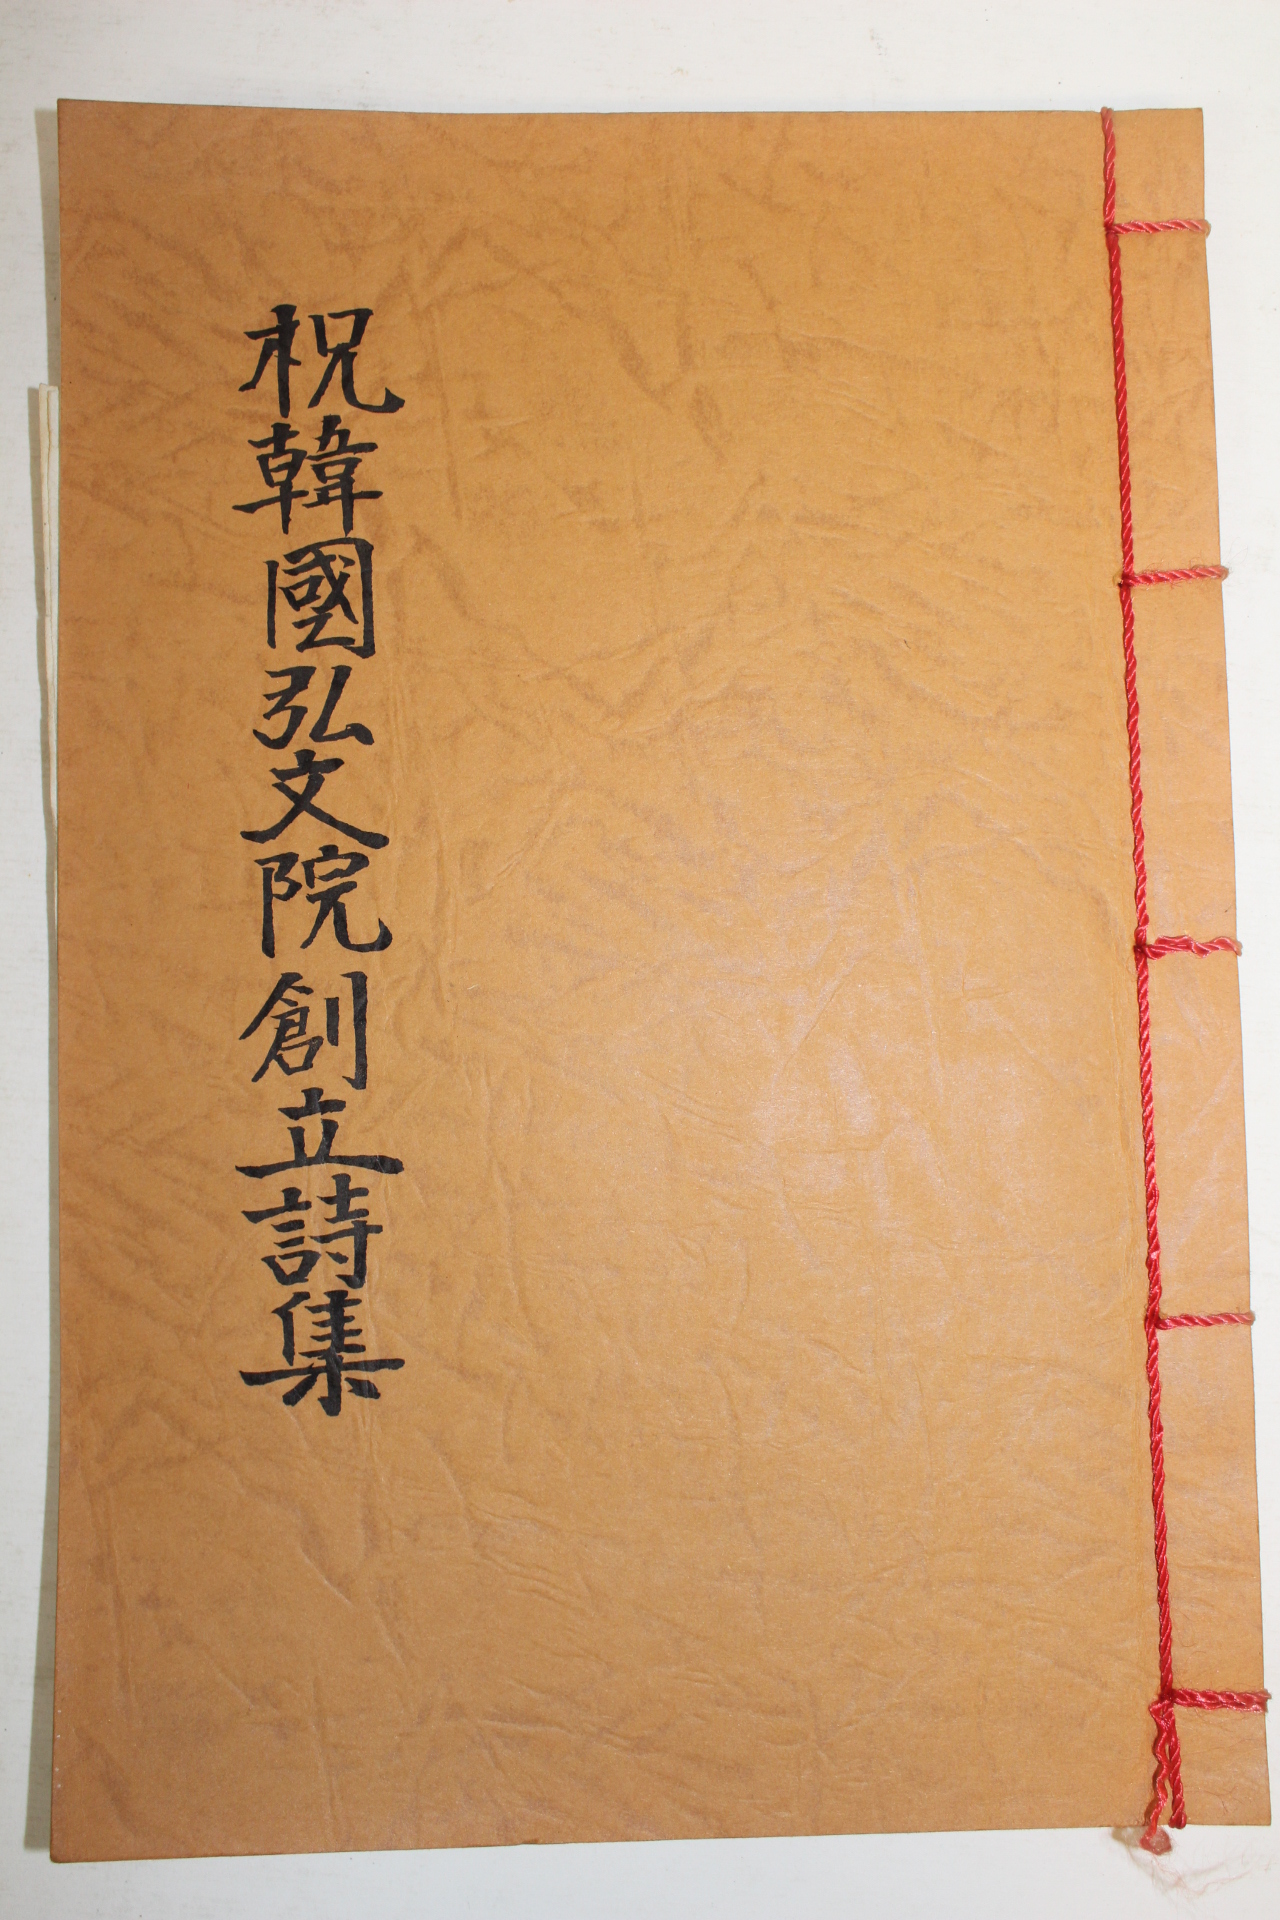 祝韓國弘文院創立詩集